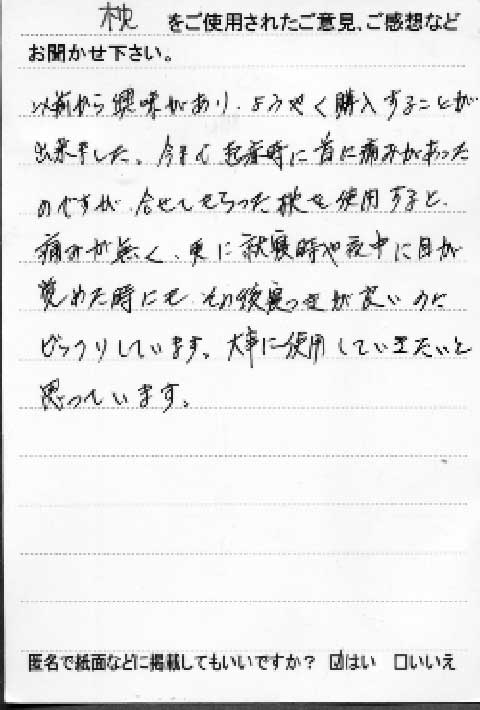 枕 をご使用されたご意見、ご感想など
お聞かせ下さい。
以前から興味があり、ようやく購入することが
出来ました。今まで起床時に首に痛みがあった
のですが、合せてもらった枕を使用すると、
痛みが無く、更に就寝時や夜中に目が
覚めた時にも、その後寝つきが良いのに
ビックリしています。大事に使用していきたいと
思っています。
匿名で紙面などに掲載してもいいですか? ☑はい □いいえ